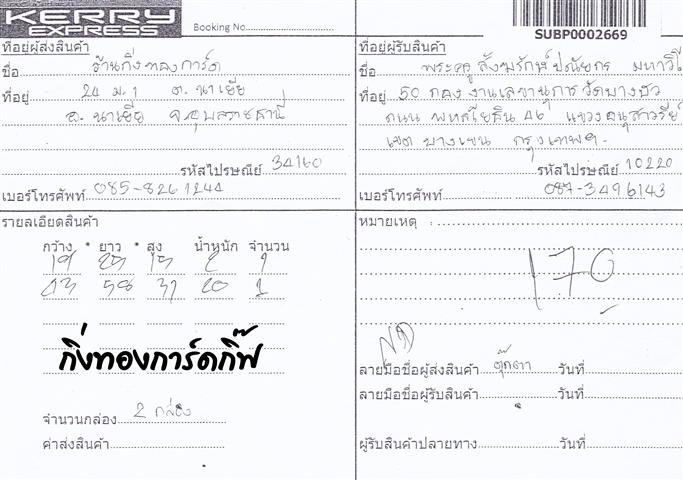 KERRY
EXPRESS
Booking No
SUBP0002669
ที่อยู่ผู้ส่งสินค้า
ชื่อ ร้านกิ่งทองการ์ด
ที่อยู่ 24 ม.1 ต.นาเยีย
อ.นาเยีย จ.อุบลราชธานี
รหัสไปรษณีย์ 34160
เบอร์โทรศัพท์ 085-8261244
ที่อยู่ผู้รับสินค้า
ชื่อ พระครูสังฆรักษ์ มหาวิโ
ที่อยู่ 50 กองงานเลขานุการ วัดบางบัว
ถนน พหลโยธิน 46 แขวง อนุสาวรีย์
เขต บางเขน กรุงเทพฯ
รหัสไปรษณีย์ 10220
เบอร์โทรศัพท์ 087-3496143
รายละเอียดสินค้า
กว้าง * ยาว * สูง น้ำหนัก จำนวน
19 25 15 2 1
43 58 31 20 1
กิ่งทองการ์ดกิ๊ฟ
จำนวนกล่อง 2 กล่อง
ค่าส่งสินค้า
หมายเหตุ :
170
ND
ลายมือชื่อผู้ส่งสินค้า ตุ๊กตา วันที่
ลายมือชื่อผู้รับสินค้า วันที่
ผู้รับสินค้าปลายทาง วันที่